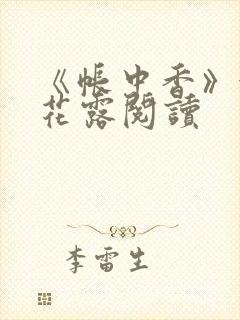 《帳中香》
花露閱讀
李雷生